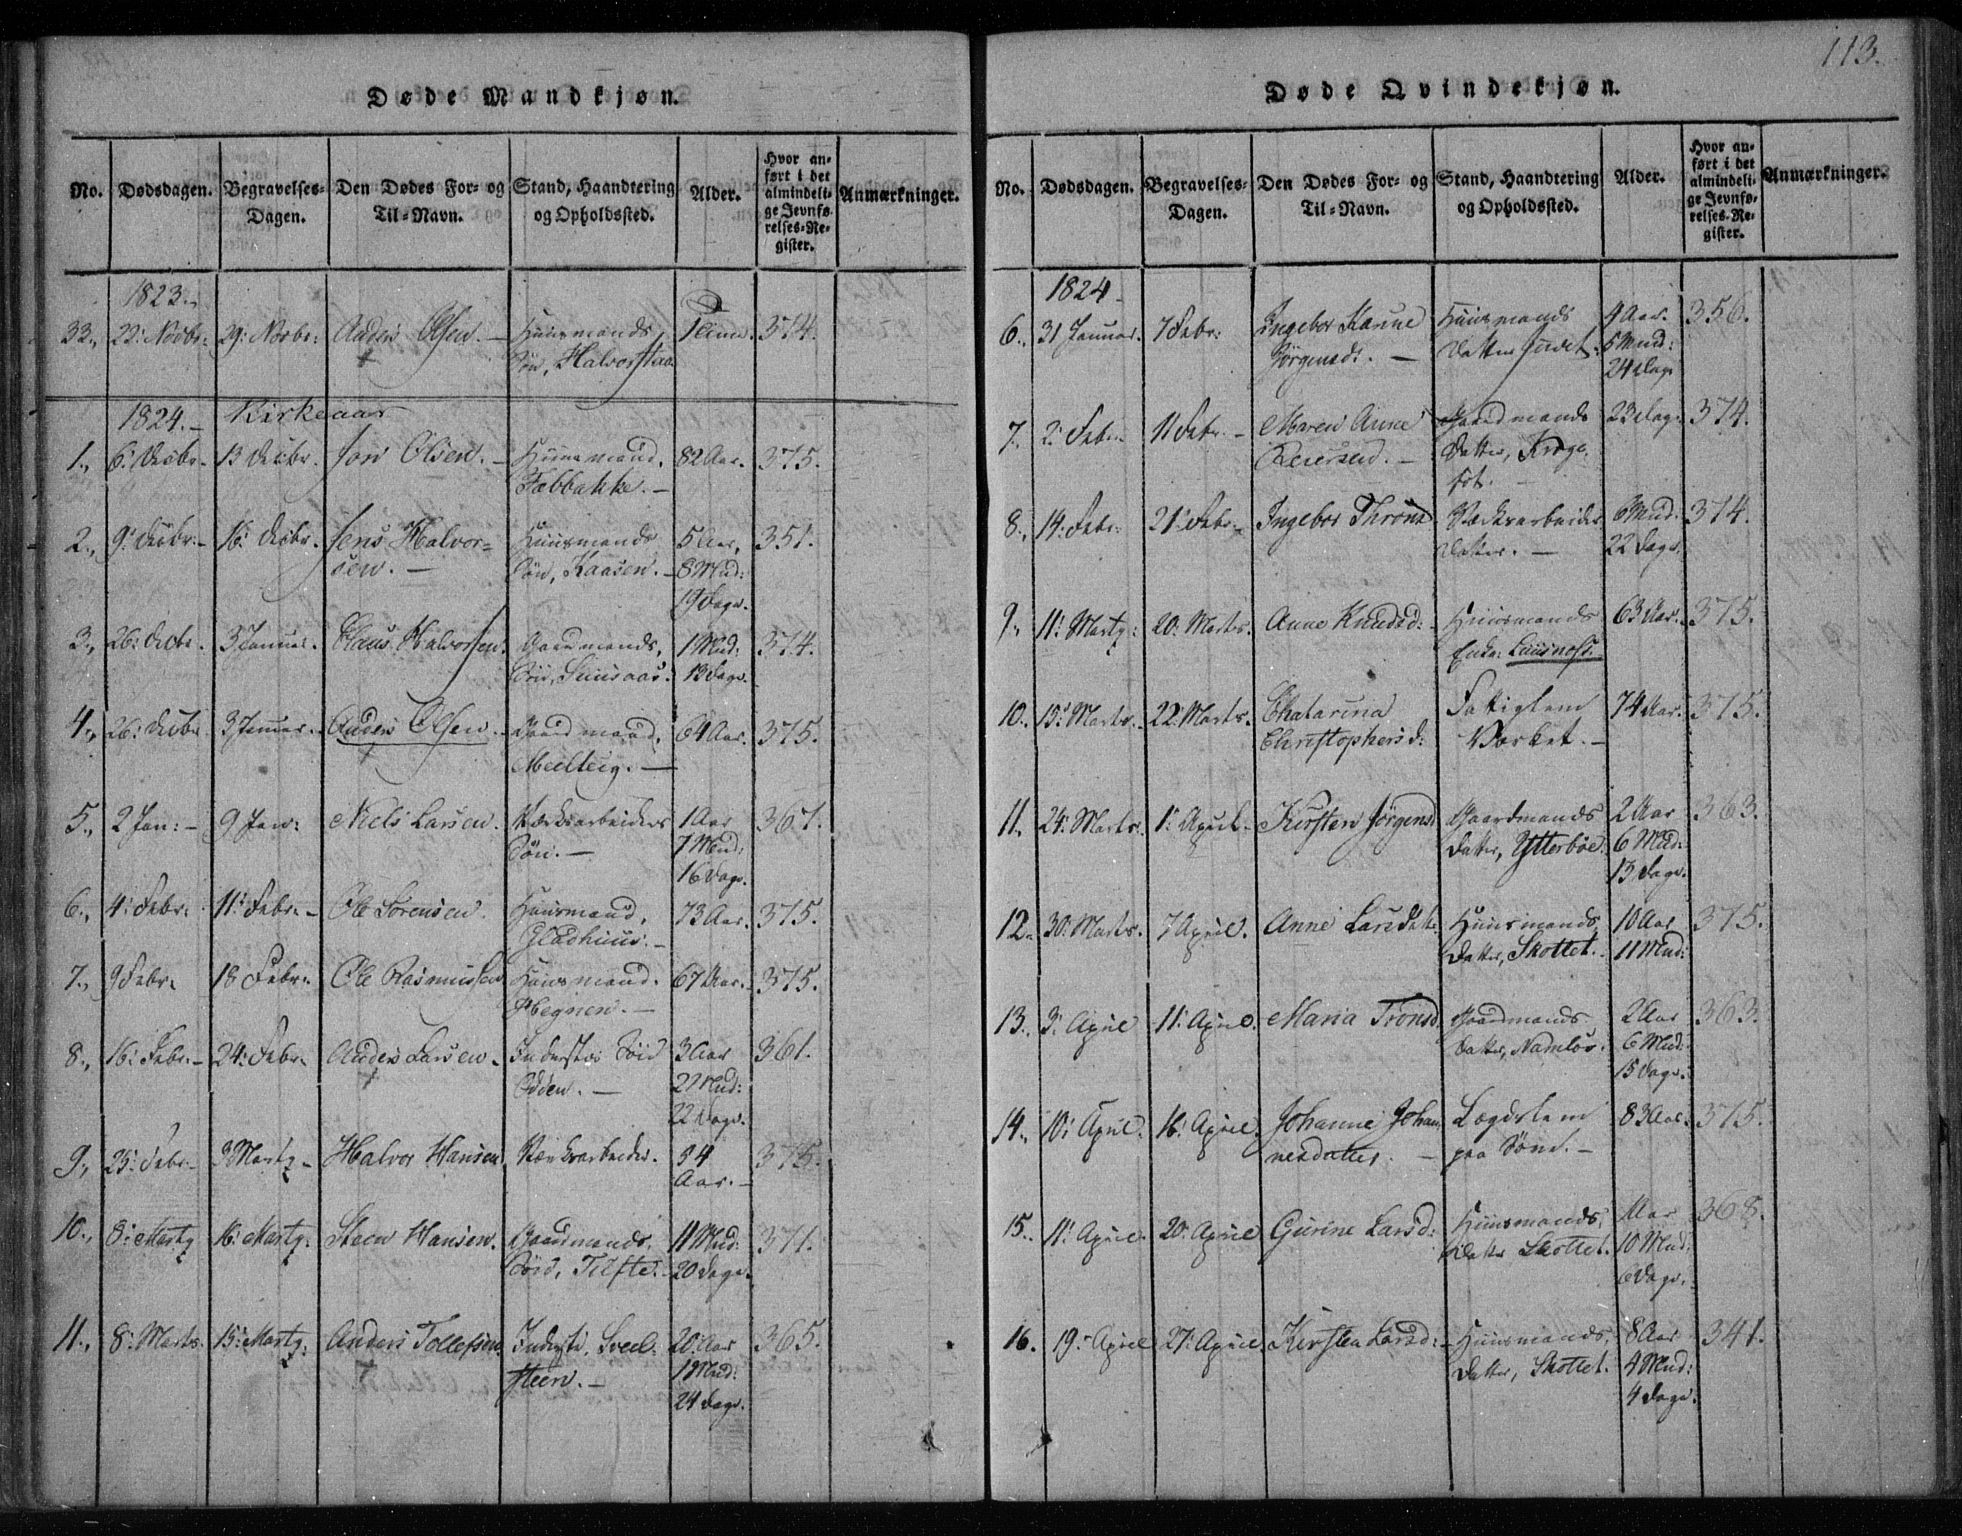 113.
Døde Mandkjøn.
No. Dødsdagen. Begravelses-Dagen. Den Dødes For- og Til-Navn. Stand, Haandtering og Opholdssted. Alder. Hvor anført i det almindelige Jevnførelses-Register. Anmærkninger.
1823.
33., 22: Novbr: 29: Novbr: Anders Olsen. — Huusmands
Søn, Halvorstaa 1 Time. 374.
1824. — Kirkeaar
1., 6: Decbr. 13 Decbr. Jon Olsen. — Huusmand, 82 Aar. 375.
Fæbbakke. —
2., 9: Decbr. 16: Decbr. Jens Halvor= Huusmands 5 Aar, 351.
sen. — Søn, Kaasen. — 8 Mnd:
19 Dage.
3., 26: Decbr. 3 Januar. Claus Halvorsen. Gaardmands, 1 Mnd: 374.
Søn, 13 Dage.
4., 26: Decbr. 3 Januar. Anders Olsen. Gaardmand, 64 Aar. 375.
Meelteig. —
5., 2 Jan: — 9 Jan: Niels Larsen. Værksarbeiders 1 Aar 367.
Søn. — 7 Mnd:
16 Dage.
6., 4: Febr. 11: Febr. — Ole Sørensen. Huusmand, 73 Aar. 375.
Gladhuus. —
7., 9 Febr. 18 Febr. Ole Rasmussen Huusmand. 67 Aar. 375.
Hegnen. —
8., 16: Febr. — 24: Febr. Anders Larsen. Inderstes Søn 3 Aar 361.
Odden. — 2 Mnd:
22 Dage.
9., 25: Febr. — 3 Martz — Halvor Hansen Værksarbeider. 54 375.
Aar. —
10., 8: Martz 16: Martz. Steen Hansen. Gaardmands, 11 Mnd: 371.
Søn, Tufte. 20 Dage.
11., 8: Marts. 15: Martz. Anders Tollefsen. Inderste, Sved. 20: Aar 365.
steen. — 1 Mnd:
24 Dage.
Døde Qvindekjøn.
No. Dødsdagen. Begravelses-Dagen. Den Dødes For- og Til-Navn. Stand, Haandtering og Opholdssted. Alder. Hvor anført i det almindelige Jevnførelses-Register. Anmærkninger.
1824
6., 31 Januar. 7 Febr: Ingebor Karine Huusmands 4 Aar. 356.
Jørgensd: — Datter 5 Mnd:
24 Dage
7. 2: Febr. 11 Febr. — Maren Anne Gaardmands 23 Dage 374.
Reiersen. — Datter, Kroge-
fot.
8., 14: Febr: 21: Febr. Ingebor Thronsd Værksarbeider 6 Mnd: 374.
Datter. — 22 Dage.
9., 11: Martz: 20: Marts. Anne Knudsd: Huusmands 63 Aar. 375.
Enke.
10. 15: Marts. 22: Marts. Chatarina Fattiglem 74 Aar. 375.
Christophersd: Værket. —
11., 24: Marts. 1: April. Kirsten Jørgensd Gaardmands 2 Aar 363.
Datter, Ytterbøe. 6 Mnd:
13 Dage.
12. 30: Marts. 7 April. Anne Larsdat. Huusmands, 10 Aar 375.
Datter, Skottet. 11 Mnd:
13. 3: April 11: April. Maria Tronsd Gaardmands 2 Aar 363.
Datter, Namløs. 6 Mnd:
15 Dage.
14., 10: April. 16: April. Johanne Johan= Lægdslem 83 Aar. 375.
nesdatter. — paa Sønd. —
15. 11: April. 20: April Gurine Larsd: Huusmands, Aar 368.
Datter Skottet. 10 Mnd:
6 Dage.
16. 19: April 27: April Kirsten Larsd: Huusmands, 8 Aar 341.
Datter, Skottet. 4 Mnd:
4 Dage.